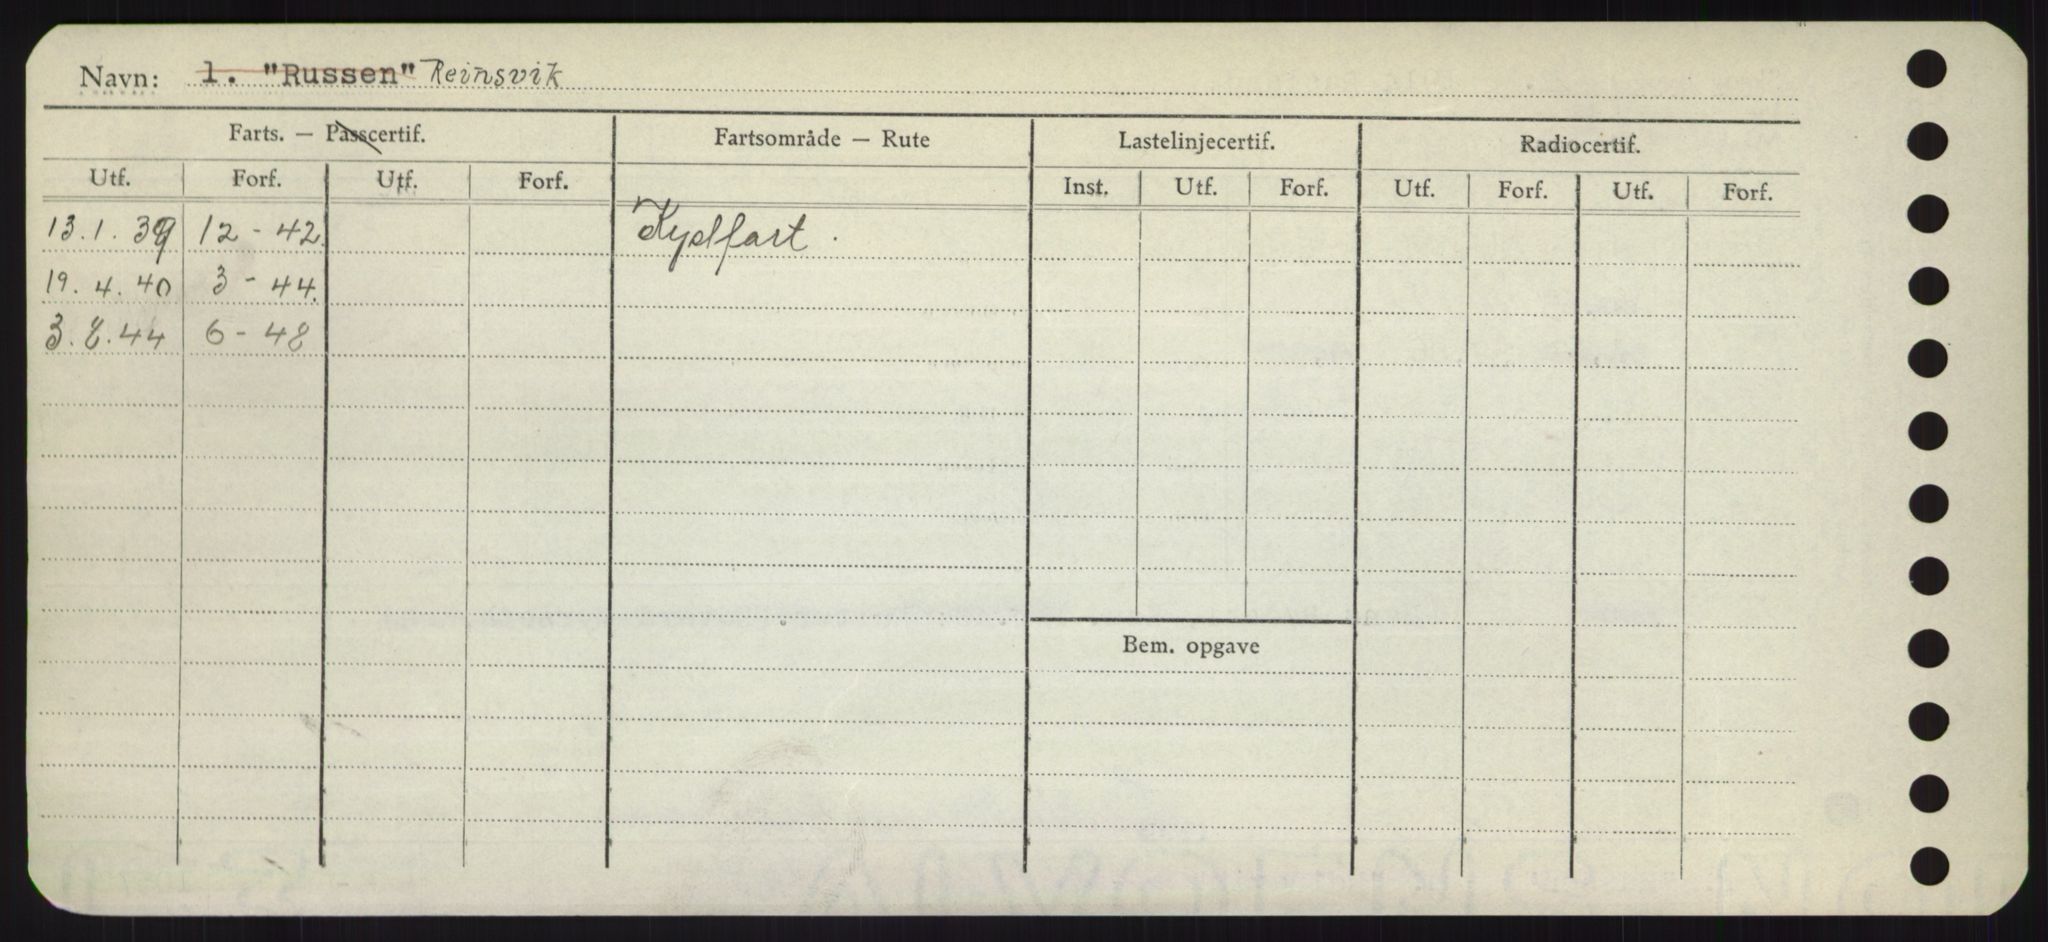 Navn: 1. "Russen" Reinsvik
Farts. — Passcertif. Fartsområde — Rute Lastelinjecertif. Radiocertif.
Utf. Forf. Utf. Forf. Inst. Utf. Forf. Utf. Forf. Utf. Forf.
13.1.39 12-42. Kystfart.
19.4.40 3-44.
3.8.44 6-48
Bem. opgave